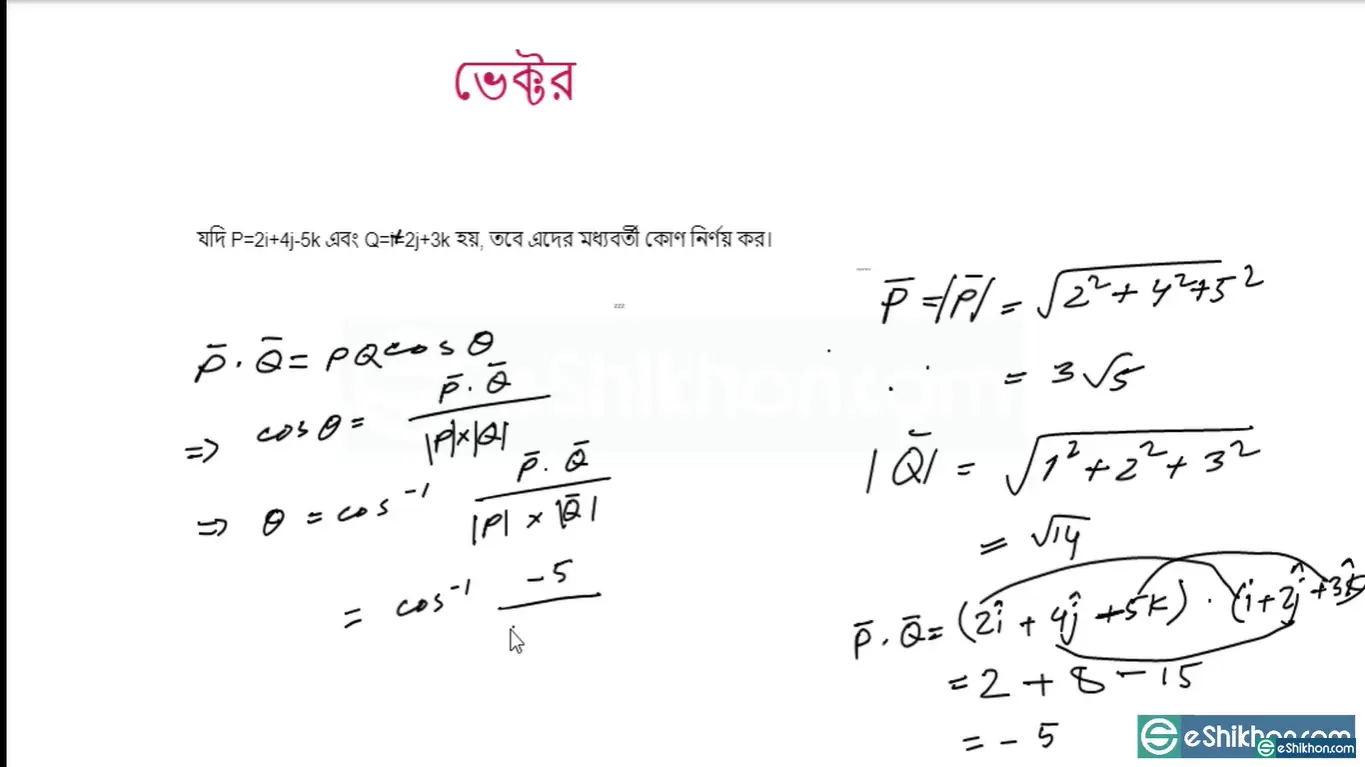 ভেক্টর
যদি P=2i+4j-5k এবং Q=i+2j+3k হয়, তবে এদের মধ্যবর্তী কোণ নির্ণয় কর।
P̄ . Q̄ = PQ cos θ
=> cos θ = P̄ . Q̄ / |P|×|Q|
=> θ = cos⁻¹ P̄ . Q̄ / |P| × |Q̄|
= cos⁻¹ -5
P̄ = |P̄| = √2² + 4² + 5²
= 3√5
|Q̄| = √1² + 2² + 3²
= √14
P̄ . Q̄ = (2î + 4ĵ + 5k) . (i + 2ĵ + 3k̂
= 2 + 8 - 15
= - 5
eShikhon.com
eShikhon.com
eShikhon.com